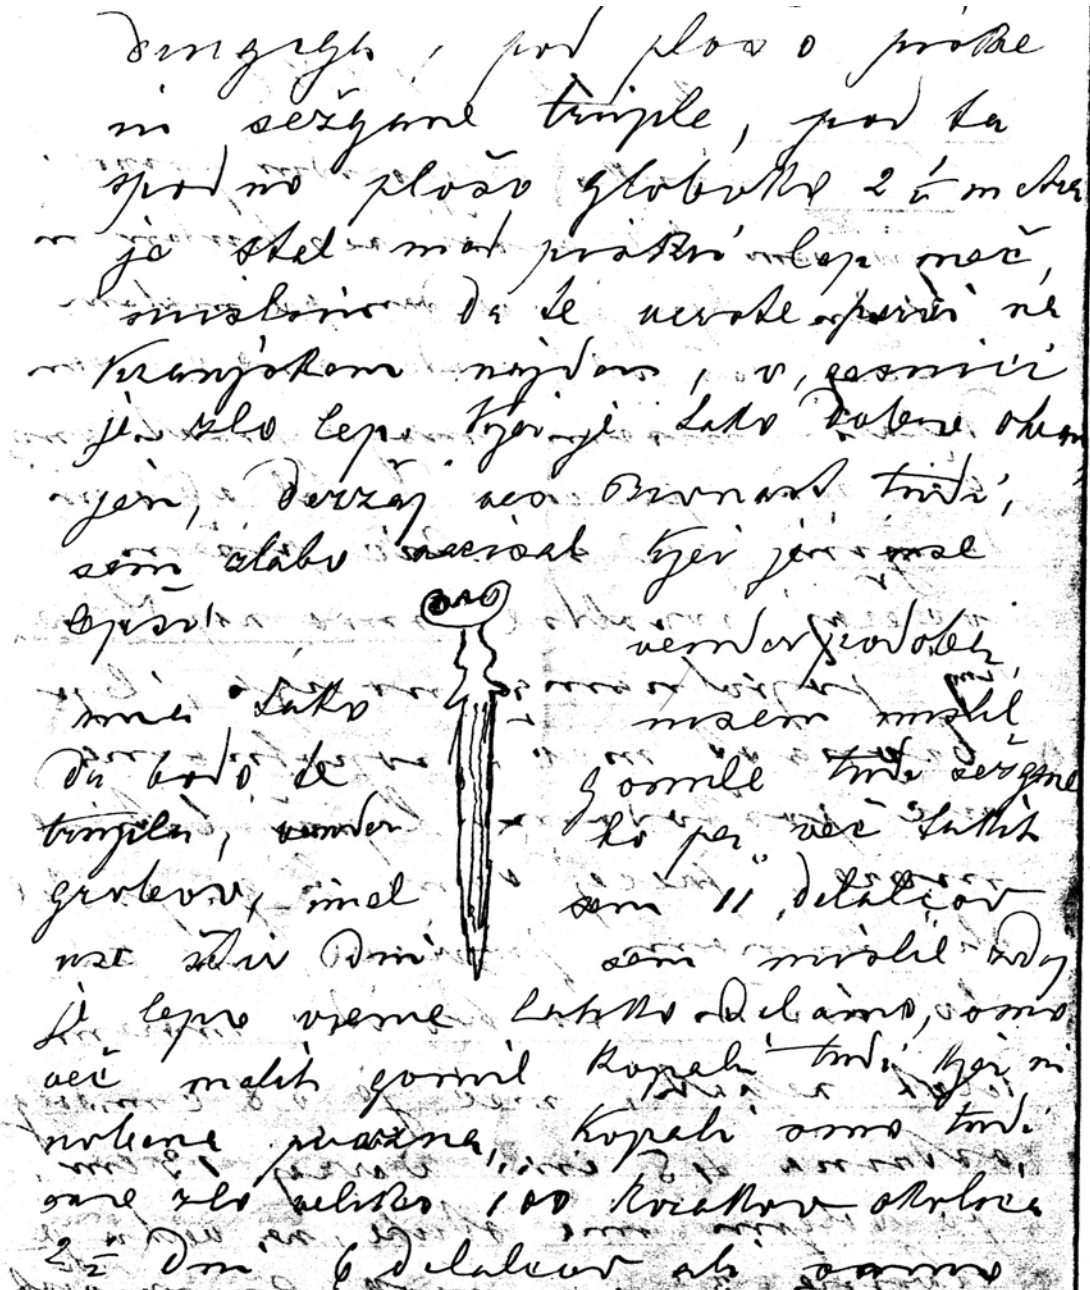 druzega, pod ploso piske
in sežgane truple, pod ta
spodno plošo globoko 2 1/2 metra
je stal med piskri lep meč,
mislim da te verste pervi na
Kranjskem najden, v resnici
je zlo lep. Kjer je tako dobro ohra
njen, derzaj ves Bronast tudi,
sem slabo narisal kjer je
lepši vender podoben
ima tako nisem mislil
da bodo te gomile tudi sežgane
trupla, vender ko pa več takih
grobov, imel sem 11 delalcov
use štir dni sem mislil zdaj
je lepo vreme lahko delamo, smo
več malih gomil kopali tudi kjer ni
nobena prazna, kopali smo tudi
ene zlo veliko 100 korakov okroliza
2 1/2 dni 6 delalcov ali samo